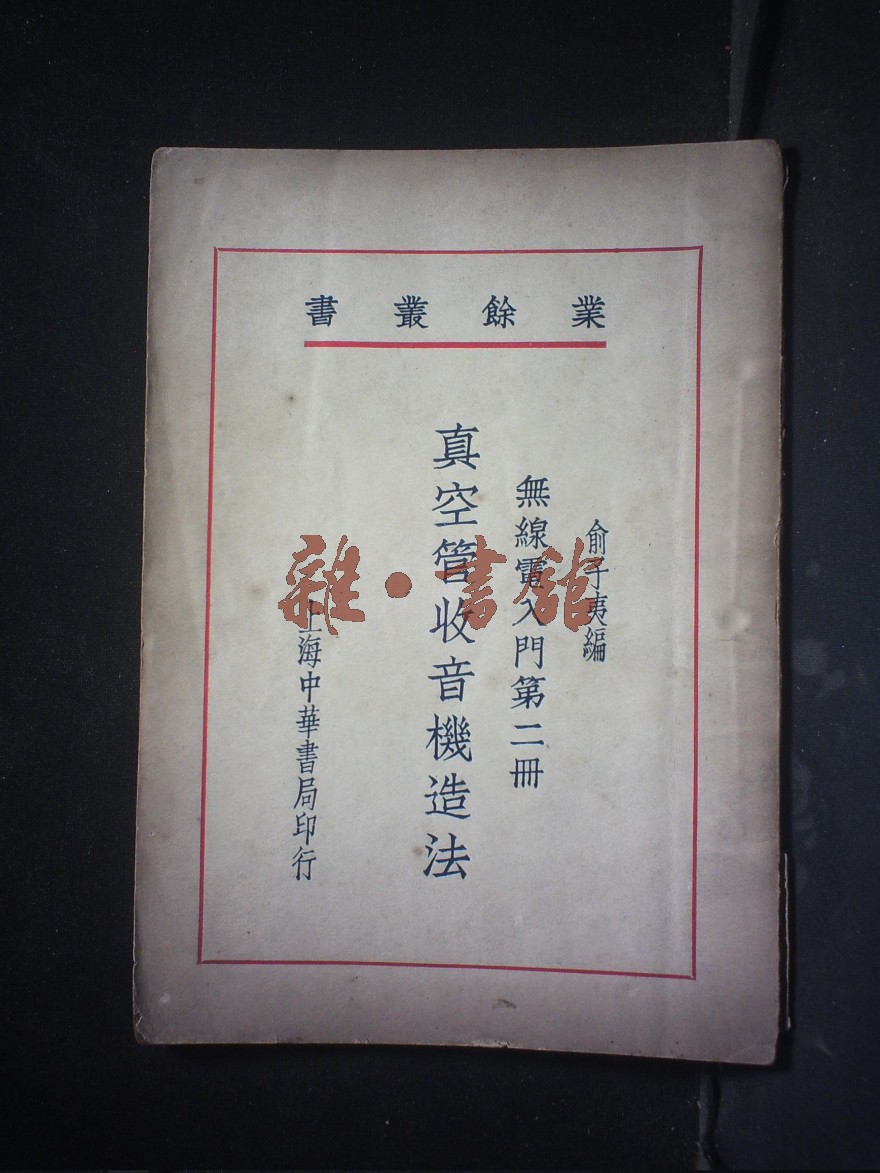 業餘叢書
俞子夷編
無線電入門第二冊
真空管收音機造法
上海中華書局印行
雜·書館